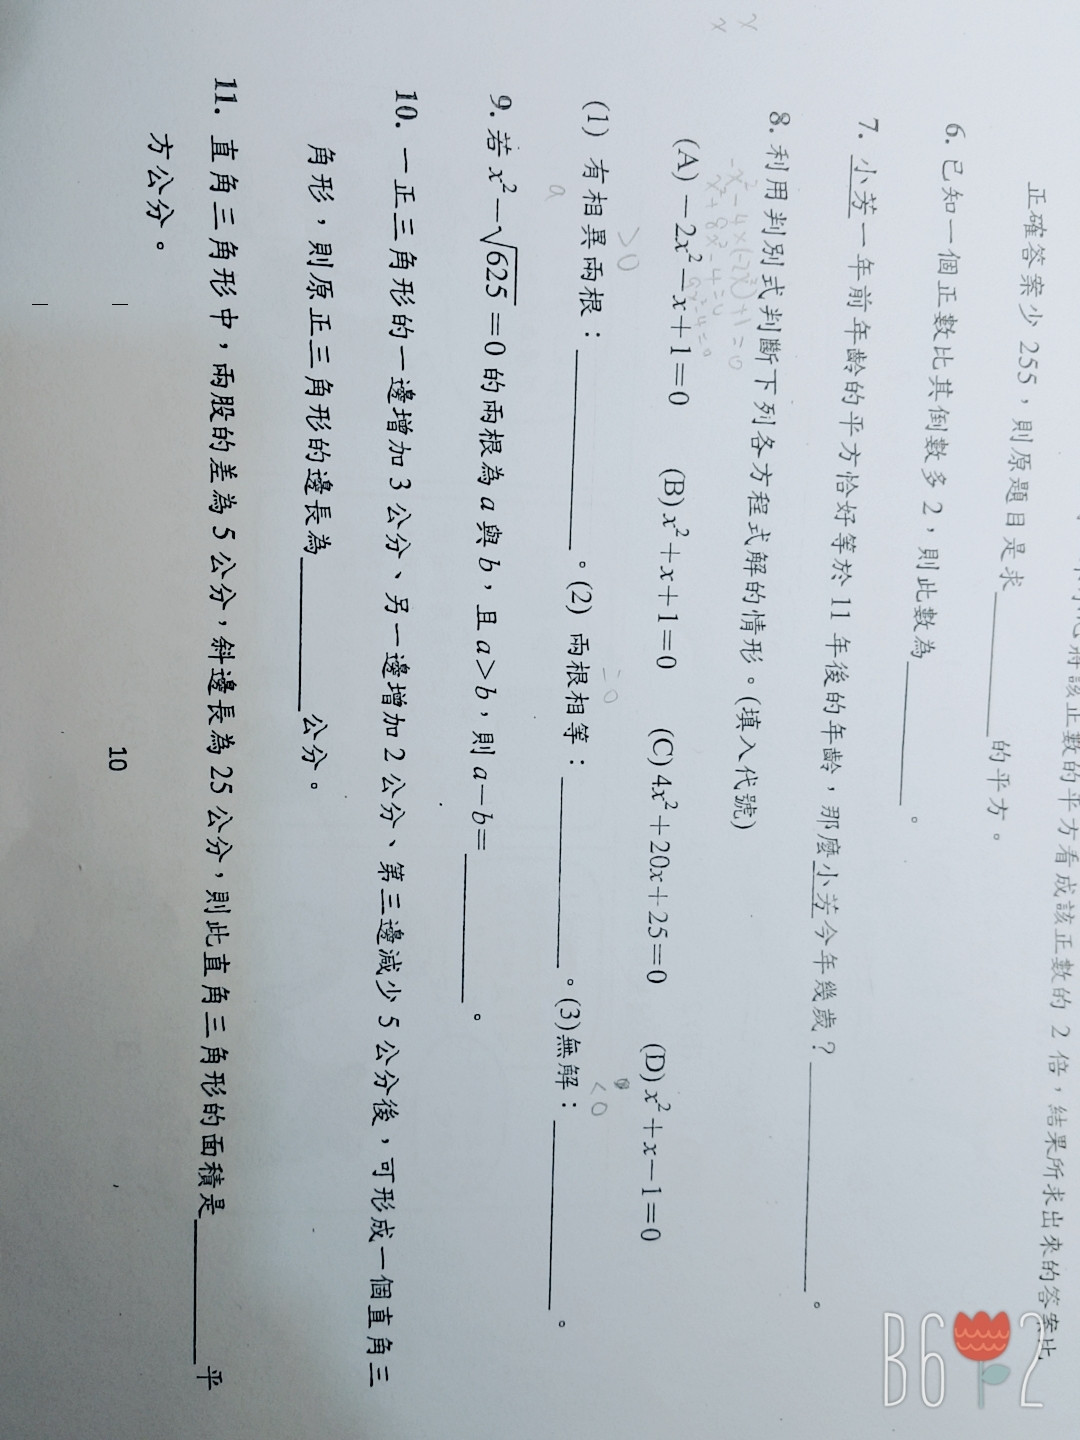 將該正數的平方看成該正數的 2 倍，結果所求出來的答案比
正確答案少 255，則原題目是求________的平方。
6. 已知一個正數比其倒數多 2，則此數為________。
7. 小芳一年前年齡的平方恰好等於 11 年後的年齡，那麼小芳今年幾歲？________。
8. 利用判別式判斷下列各方程式解的情形。(填入代號)
(A) －2x²－x＋1＝0 (B) x²＋x＋1＝0 (C) 4x²＋20x＋25＝0 (D) x²＋x－1＝0
>0 =0 <0
(1) 有相異兩根：________。(2) 兩根相等：________。(3)無解：________。
a
9. 若 x²－√625＝0 的兩根為 a 與 b，且 a＞b，則 a－b＝________。
10. 一正三角形的一邊增加 3 公分、另一邊增加 2 公分、第三邊減少 5 公分後，可形成一個直角三
角形，則原正三角形的邊長為________公分。
11. 直角三角形中，兩股的差為 5 公分，斜邊長為 25 公分，則此直角三角形的面積是________平
方公分。
10
B612